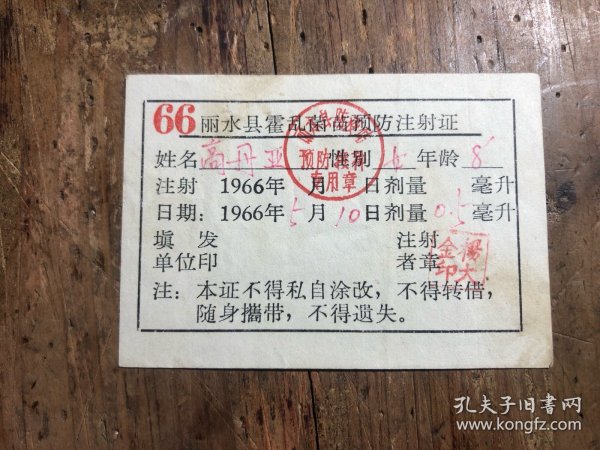 66 丽水县霍乱菌苗预防注射证
姓名 高丹 性别 女 年龄 8
注射 1966年 月 日剂量 毫升
日期：1966年 5月10日剂量 0.5 毫升
填发 注射
单位印 者章
注：本证不得私自涂改，不得转借，
随身攜带，不得遗失。
预防接种
专用章
孔夫子旧书网
www.kongfz.com